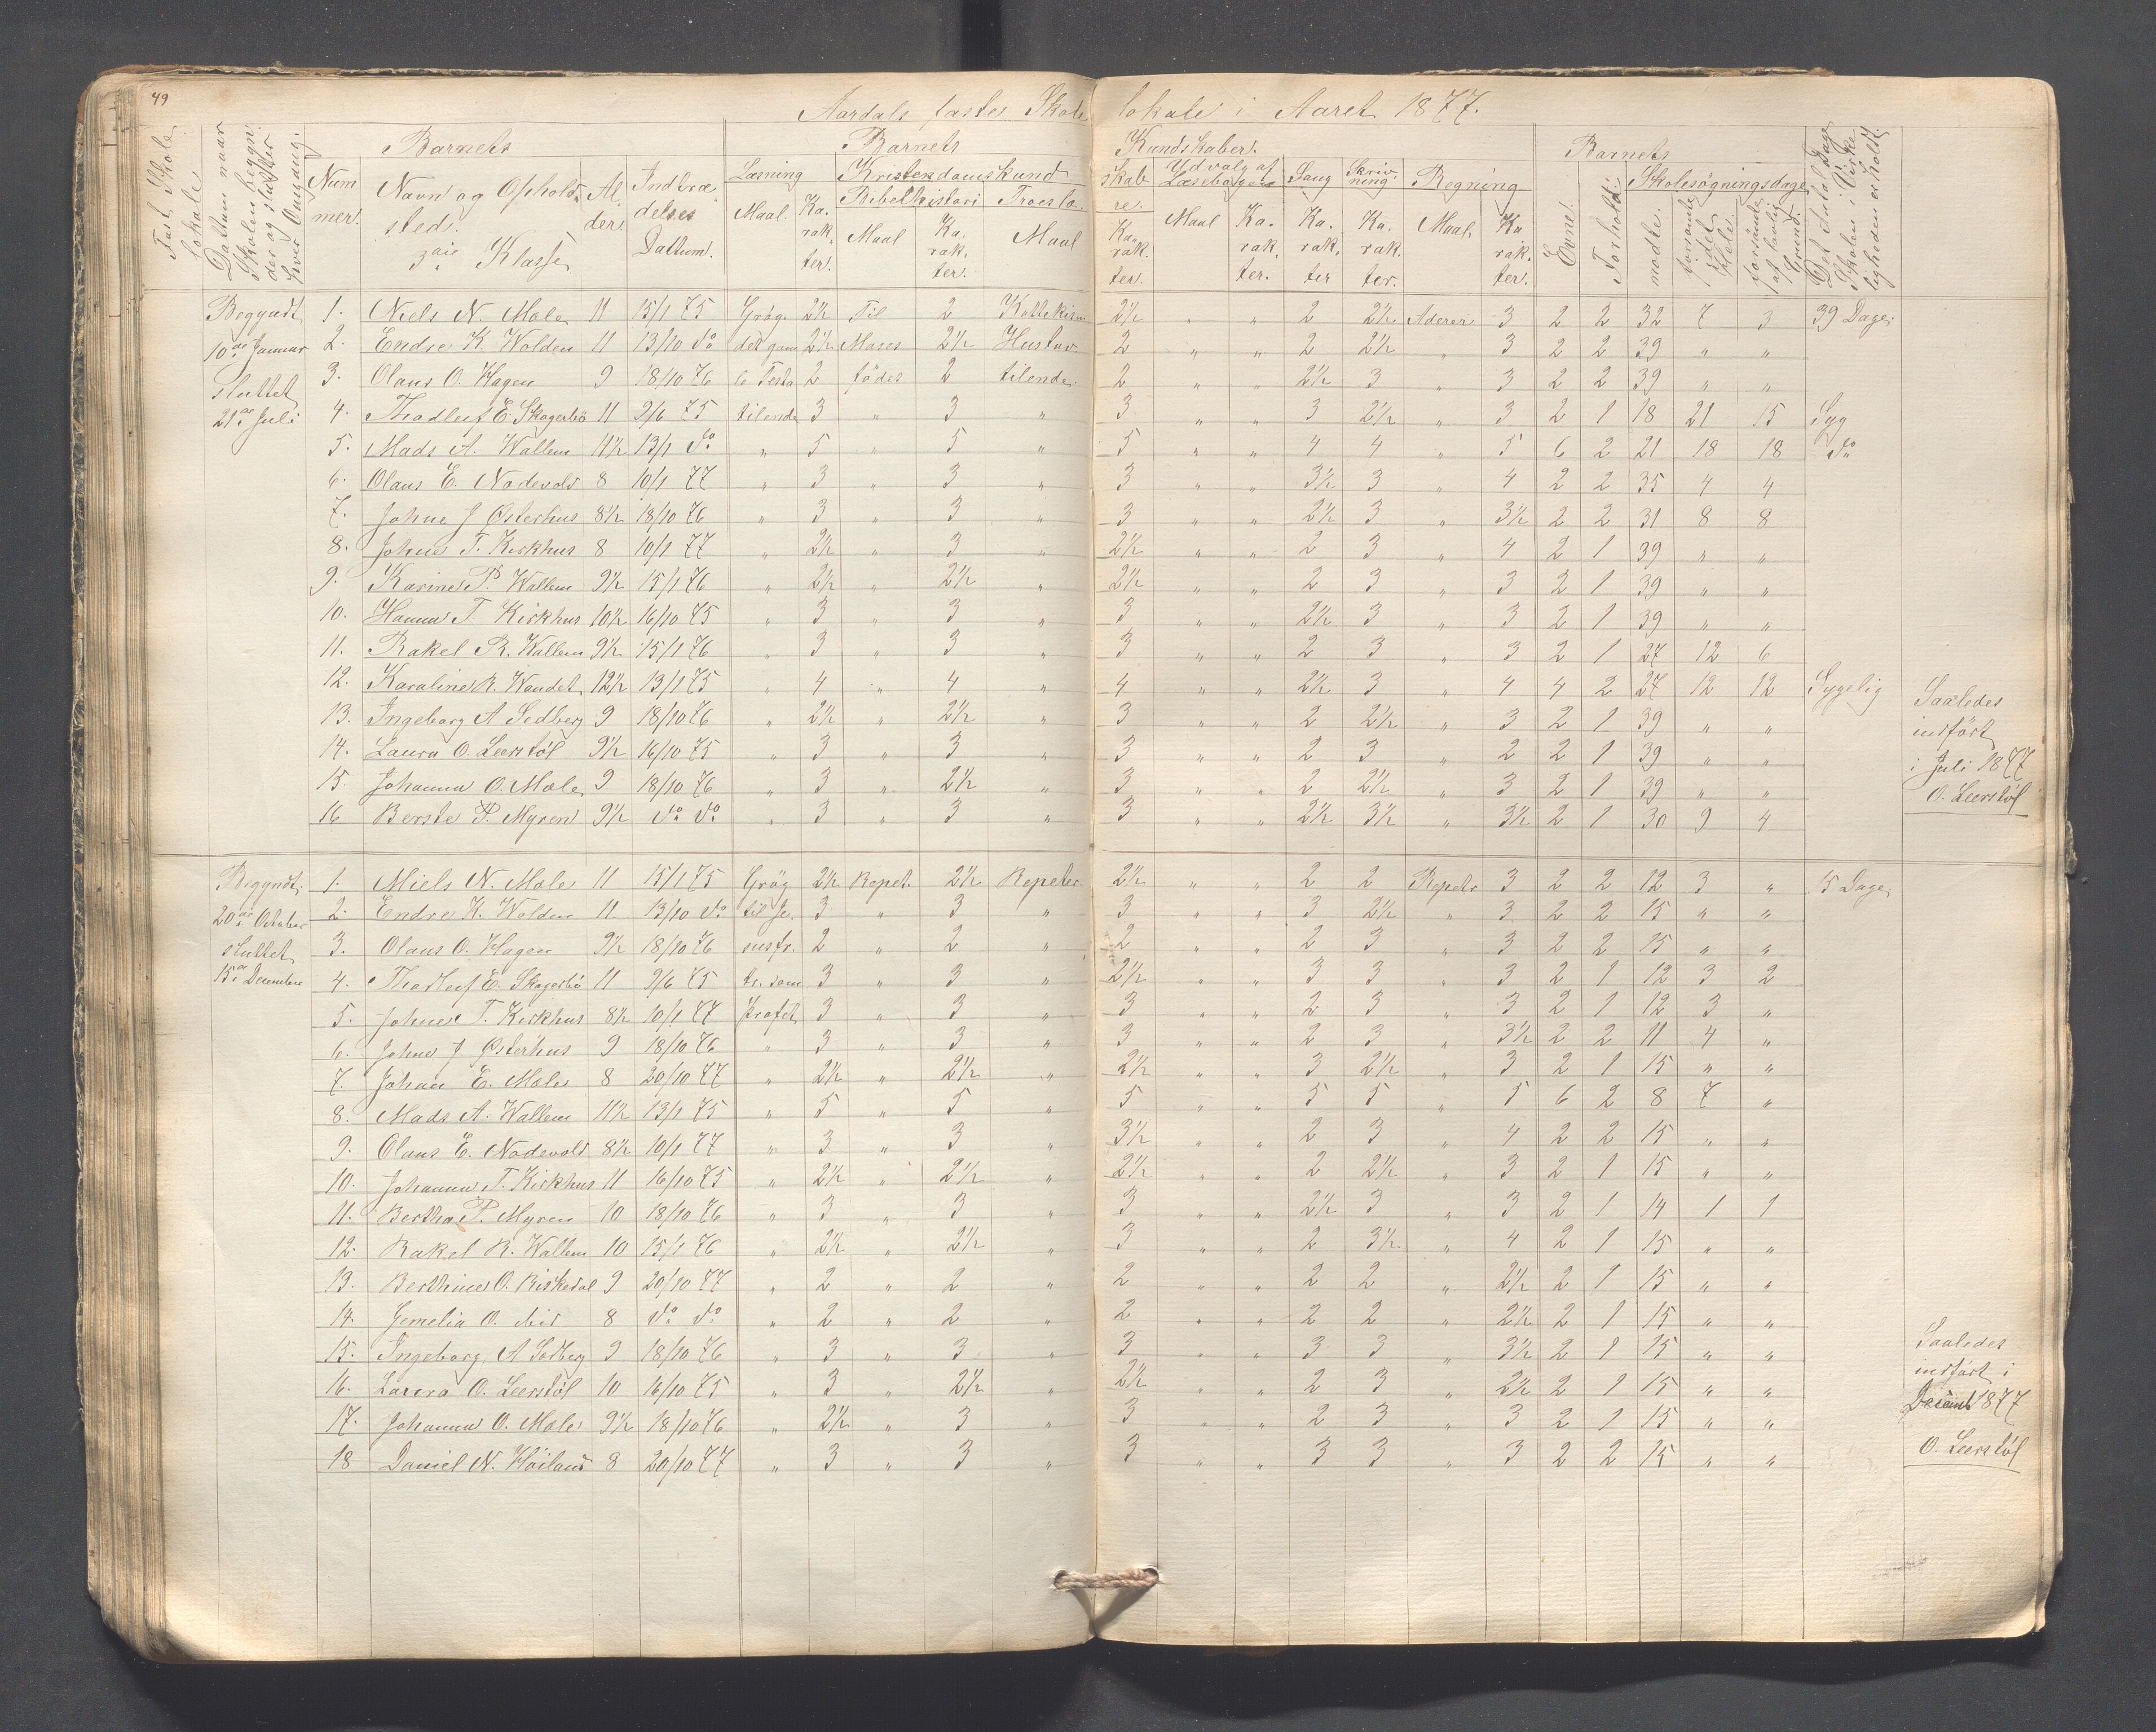 49
Aardals faste Skolelokale i Aaret 1877.
Fast Skolelokale.
Datum naar Skolen begynder og slutter hver Omgang.
Barnets
Nummer.
Navn og Opholdssted.
3die Klasse
Alder.
Indtrædelses Dattum.
Barnets Kundskaber.
Læsning
Maal.
Karakter.
Kristendomskundskab
Bibelhistori
Maal
Karakter.
Troeslære.
Maal
Karakter.
Udvalg af Læsebogen
Maal
Karakter.
Sang
Karakter
Skrivning
Karakter.
Regning
Maal.
Karakter.
Barnets
Evne.
Forhold.
Skolesøgningsdage
mødte.
forsømte i det Hele.
forsømte af lovlig Grund.
Det Antal Dage Skolen i Virkeligheden er holdt.
Begyndt 1. Niels N. Mæle 11 15/1 75 Grøg. 2½ Til 2 Kattekism 2½ " " 2 2½ Aderer 3 2 2 32 7 3 39 Dage.
10de Januar 2. Endre K. Wolden 11 13/10 do det gam 2½ Moses 2½ Hustav. 2 " " 2 2½ " 3 2 2 39 " "
sluttet 3. Olaus O. Hagen 9 18/10 76 le Testa 2 fødes 2 tilende. 2 " " 2½ 3 " 3 2 2 39 " "
21de Juli 4. Thodluf E. Skogerbø 11 9/6 75 tilende 3 " 3 " 3 " " 3 2½ " 3 2 1 18 21 15 Syg
5. Mads A. Wallem 11½ 13/1 do " 5 " 5 " 5 " " 4 4 " 5 6 2 21 18 18 do
6. Olaus E. Nodevold 8 10/1 77 " 3 " 3 " 3 " " 3½ 3 " 4 2 2 35 4 4
7. Johne J Østerhus 8½ 18/10 76 " 3 " 3 " 3 " " 2½ 3 " 3½ 2 2 31 8 8
8. Johne T. Kirkhus 8 10/1 77 " 2½ " 3 " 2½ " " 2 3 " 4 2 1 39 " "
9. Karine P. Wallem 9½ 15/1 76 " 2½ " 2½ " 2½ " " 2 3 " 3 2 1 39 " "
10. Hanna T. Kirkhus 10½ 16/10 75 " 3 " 3 " 3 " " 2½ 3 " 3 2 1 39 " "
11. Rakel R. Wallem 9½ 15/1 76 " 3 " 3 " 3 " " 2 3 " 3 2 1 27 12 6
12. Karaline R. Wandet 12½ 13/1 75 " 4 " 4 " 4 " " 2½ 3 " 4 4 2 27 12 12 Sygelig
13. Ingeborg A Sedberg 9 18/10 76 " 2½ " 2½ " 3 " " 2 2½ " 3 2 1 39 " "
14. Laura O. Leerstøl 9½ 16/10 75 " 3 " 3 " 3 " " 2 3 " 2 2 1 39 " "
15. Johanna O. Mæle 9 18/10 76 " 3 " 2½ " 3 " " 2 2½ " 3 2 1 39 " "
16 Berste P. Myren 9½ do do " 3 " 3 " 3 " " 2½ 3½ " 3½ 2 1 30 9 4
Saaledes
indført
i Juli 1877
O. Leerstøl
Begyndt 1. Niels N. Mæle 11 15/1 75 Grøg 2½ Repet. 2½ Repeter. 2½ " " 2 2 Repeter 3 2 2 12 3 " 15 Dage.
20de October 2. Endre K. Wolden 11 13/10 do til Je. 3 " 3 " 3 " " 3 2½ " 3 2 2 15 " "
sluttet 3. Olaus O. Hagen 9½ 18/10 76 susfr. 2 " 2 " 2 " " 2 3 " 3 2 2 15 " "
15de December 4. Thodluf E. Skogerbø 11 9/6 75 tr. som 3 " 3 " 2½ " " 3 3 " 3 2 1 12 3 2
5. Johne T. Kirkhus 8½ 10/1 77 Profet 3 " 3 " 3 " " 2 3 " 3 2 1 12 3 "
6. Johne J Østerhus 9 18/10 76 " 3 " 3 " 3 " " 2 3 " 3½ 2 2 11 4 "
7. Johan E. Mæle 8 20/10 77 " 2½ " 2½ " 2½ " " 3 2½ " 3 2 1 15 " "
8. Mads A. Wallem 11½ 13/1 75 " 5 " 5 " 5 " " 5 5 " 5 6 2 8 7 "
9. Olaus E. Nodevold 8½ 10/1 77 " 3 " 3 " 3½ " " 2 3 " 4 2 2 15 " "
10. Johanna T. Kirkhus 11 16/10 75 " 2½ " 2½ " 2½ " " 2 2½ " 3 2 1 15 " "
11. Bertha P. Myren 10 18/10 76 " 3 " 3 " 3 " " 2½ 3 " 3 2 1 14 1 1
12. Rakel R. Wallem 10 15/1 76 " 2½ " 2½ " 3 " " 2 3½ " 4 2 1 15 " "
13. Berthine O. Riskedal 9 20/10 77 " 2 " 2 " 2 " " 2 2 " 2½ 2 1 15 " "
14. Jemelia O. ibid 8 do do " 2 " 2 " 2 " " 2 2 " 2½ 2 1 15 " "
15. Ingeborg A Sedberg 9 18/10 76 " 3 " 3 " 3 " " 3 3 " 3½ 2 1 15 " "
16. Laura O. Leerstøl 10 16/10 75 " 3 " 2½ " 2½ " " 2 3 " 2½ 2 1 15 " "
17. Johanna O. Mæle 9½ 18/10 76 " 2½ " 3 " 3 " " 2 3 " 3 2 1 15 " "
18 Daniel N. Høiland 8 20/10 77 " 3 " 3 " 3 " " 3 3 " 3 2 2 15 " "
Saaledes
indført i
Decemb 1877
O. Leerstøl